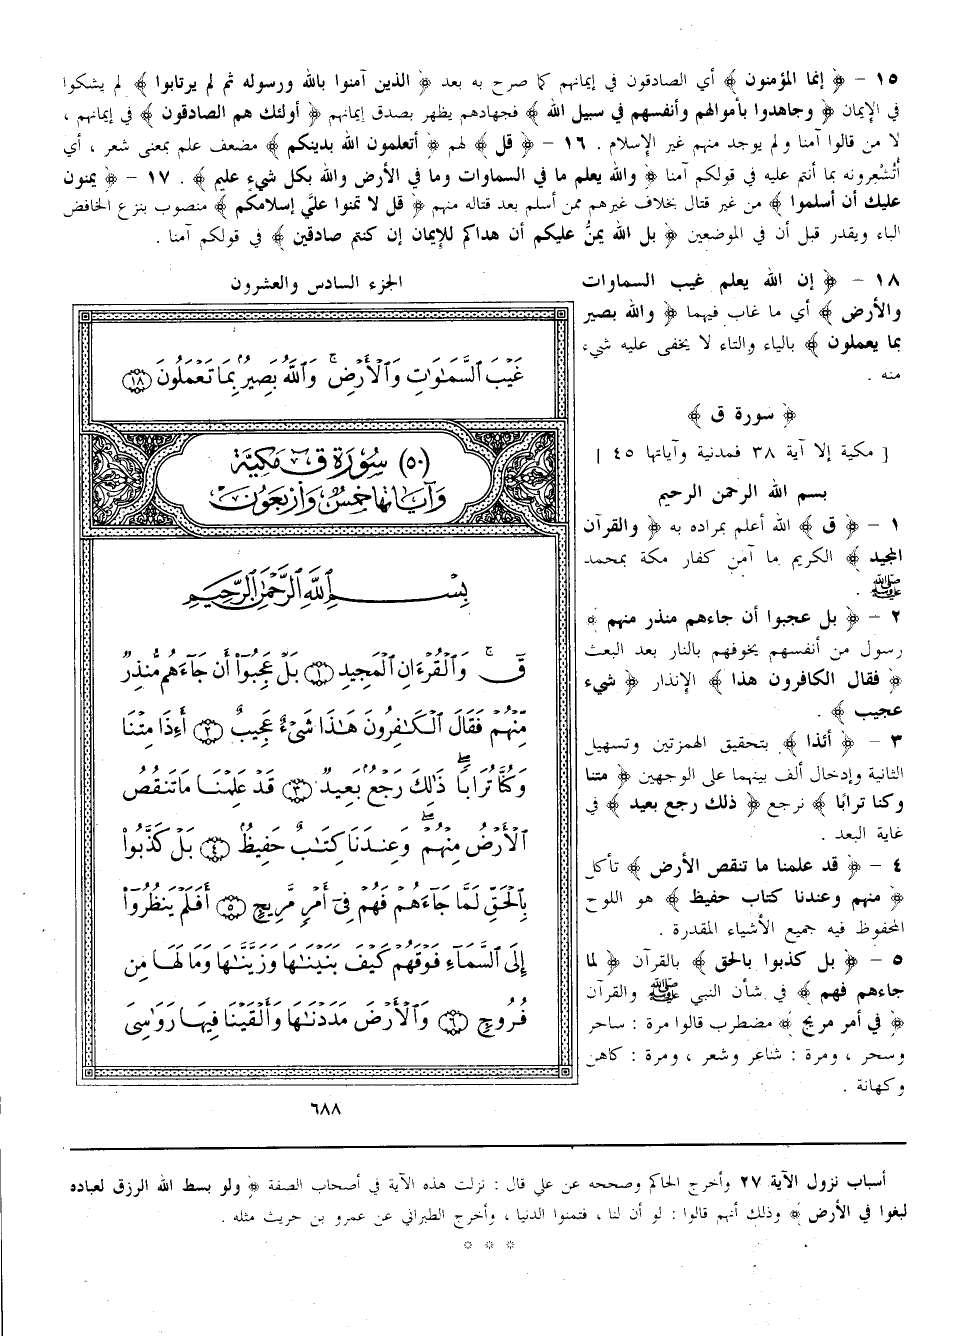 ١٥ - ﴿ إنما المؤمنون ﴾ أي الصادقون في إيمانهم كما صرح به بعد ﴿ الذين آمنوا بالله ورسوله ثم لم يرتابوا ﴾ لم يشكوا
في الإيمان ﴿ وجاهدوا بأموالهم وأنفسهم في سبيل الله ﴾ فجهادهم يظهر بصدق إيمانهم ﴿ أولئك هم الصادقون ﴾ في إيمانهم ،
لا من قالوا آمنا ولم يوجد منهم غير الإسلام . ١٦ - ﴿ قل ﴾ لهم ﴿ أتعلمون الله بدينكم ﴾ مضعف علم بمعنى شعر ، أي
أتُشْعِرونه بما أنتم عليه في قولكم آمنا ﴿ والله يعلم ما في السماوات وما في الأرض والله بكل شيءٍ عليم ﴾ . ١٧ - ﴿ يمنون
عليك أن أسلموا ﴾ من غير قتال بخلاف غيرهم ممن أسلم بعد قتاله منهم ﴿ قل لا تمنوا عليَّ إسلامكم ﴾ منصوب بنزع الخافض
الباء ويقدر قبل أن في الموضعين ﴿ بل الله يمنُّ عليكم أن هداكم للإيمان إن كنتم صادقين ﴾ في قولكم آمنا .
١٨ - ﴿ إن الله يعلم غيب السماوات
والأرض ﴾ أي ما غاب فيهما ﴿ والله بصير
بما يعملون ﴾ بالياء والتاء لا يخفى عليه شيء
منه .
﴿ سورة ق ﴾
[ مكية إلا آية ٣٨ فمدنية وآياتها ٤٥ ]
بسم الله الرحمن الرحيم
١ - ﴿ ق ﴾ الله أعلم بمراده به ﴿ والقرآن
المجيد ﴾ الكريم ما آمن كفار مكة بمحمد
ﷺ .
٢ - ﴿ بل عجبوا أن جاءهم منذر منهم ﴾
رسول من أنفسهم يخوفهم بالنار بعد البعث
﴿ فقال الكافرون هذا ﴾ الإنذار ﴿ شيء
عجيب ﴾ .
٣ - ﴿ أئذا ﴾ بتحقيق الهمزتين وتسهيل
الثانية وإدخال ألف بينهما على الوجهين ﴿ متنا
وكنا ترابًا ﴾ نرجع ﴿ ذلك رجع بعيد ﴾ في
غاية البعد .
٤ - ﴿ قد علمنا ما تنقص الأرض ﴾ تأكل
﴿ منهم وعندنا كتاب حفيظ ﴾ هو اللوح
المحفوظ فيه جميع الأشياء المقدرة .
٥ - ﴿ بل كذبوا بالحق ﴾ بالقرآن ﴿ لما
جاءهم فهم ﴾ في شأن النبي ﷺ والقرآن
﴿ في أمر مريج ﴾ مضطرب قالوا مرة : ساحر
وسحر ، ومرة : شاعر وشعر ، ومرة : كاهن
وكهانة .
الجزء السادس والعشرون
غَيْبَ ٱلسَّمَـٰوَٰتِ وَٱلْأَرْضِ ۚ وَٱللَّهُ بَصِيرٌۢ بِمَا تَعْمَلُونَ ١٨
(٥٠) سُورَةُ قٓ مَكِّيَّة
وَآيَاتُهَا خَمْسٌ وَأَرْبَعُونَ
بِسْمِ ٱللَّهِ ٱلرَّحْمَـٰنِ ٱلرَّحِيمِ
قٓ ۚ وَٱلْقُرْءَانِ ٱلْمَجِيدِ ١ بَلْ عَجِبُوٓا۟ أَن جَآءَهُم مُّنذِرٌ
مِّنْهُمْ فَقَالَ ٱلْكَـٰفِرُونَ هَـٰذَا شَىْءٌ عَجِيبٌ ٢ أَءِذَا مِتْنَا
وَكُنَّا تُرَابًا ۖ ذَٰلِكَ رَجْعٌۢ بَعِيدٌ ٣ قَدْ عَلِمْنَا مَا تَنقُصُ
ٱلْأَرْضُ مِنْهُمْ ۖ وَعِندَنَا كِتَـٰبٌ حَفِيظٌۢ ٤ بَلْ كَذَّبُوا۟
بِٱلْحَقِّ لَمَّا جَآءَهُمْ فَهُمْ فِىٓ أَمْرٍ مَّرِيجٍ ٥ أَفَلَمْ يَنظُرُوٓا۟
إِلَى ٱلسَّمَآءِ فَوْقَهُمْ كَيْفَ بَنَيْنَـٰهَا وَزَيَّنَّـٰهَا وَمَا لَهَا مِن
فُرُوجٍ ٦ وَٱلْأَرْضَ مَدَدْنَـٰهَا وَأَلْقَيْنَا فِيهَا رَوَٰسِىَ
٦٨٨
أسباب نزول الآية ٢٧ وأخرج الحاكم وصححه عن علي قال : نزلت هذه الآية في أصحاب الصفة ﴿ ولو بسط الله الرزق لعباده
لبغوا في الأرض ﴾ وذلك أنهم قالوا : لو أن لنا ، فتمنوا الدنيا ، وأخرج الطبراني عن عمرو بن حريث مثله .
* * *